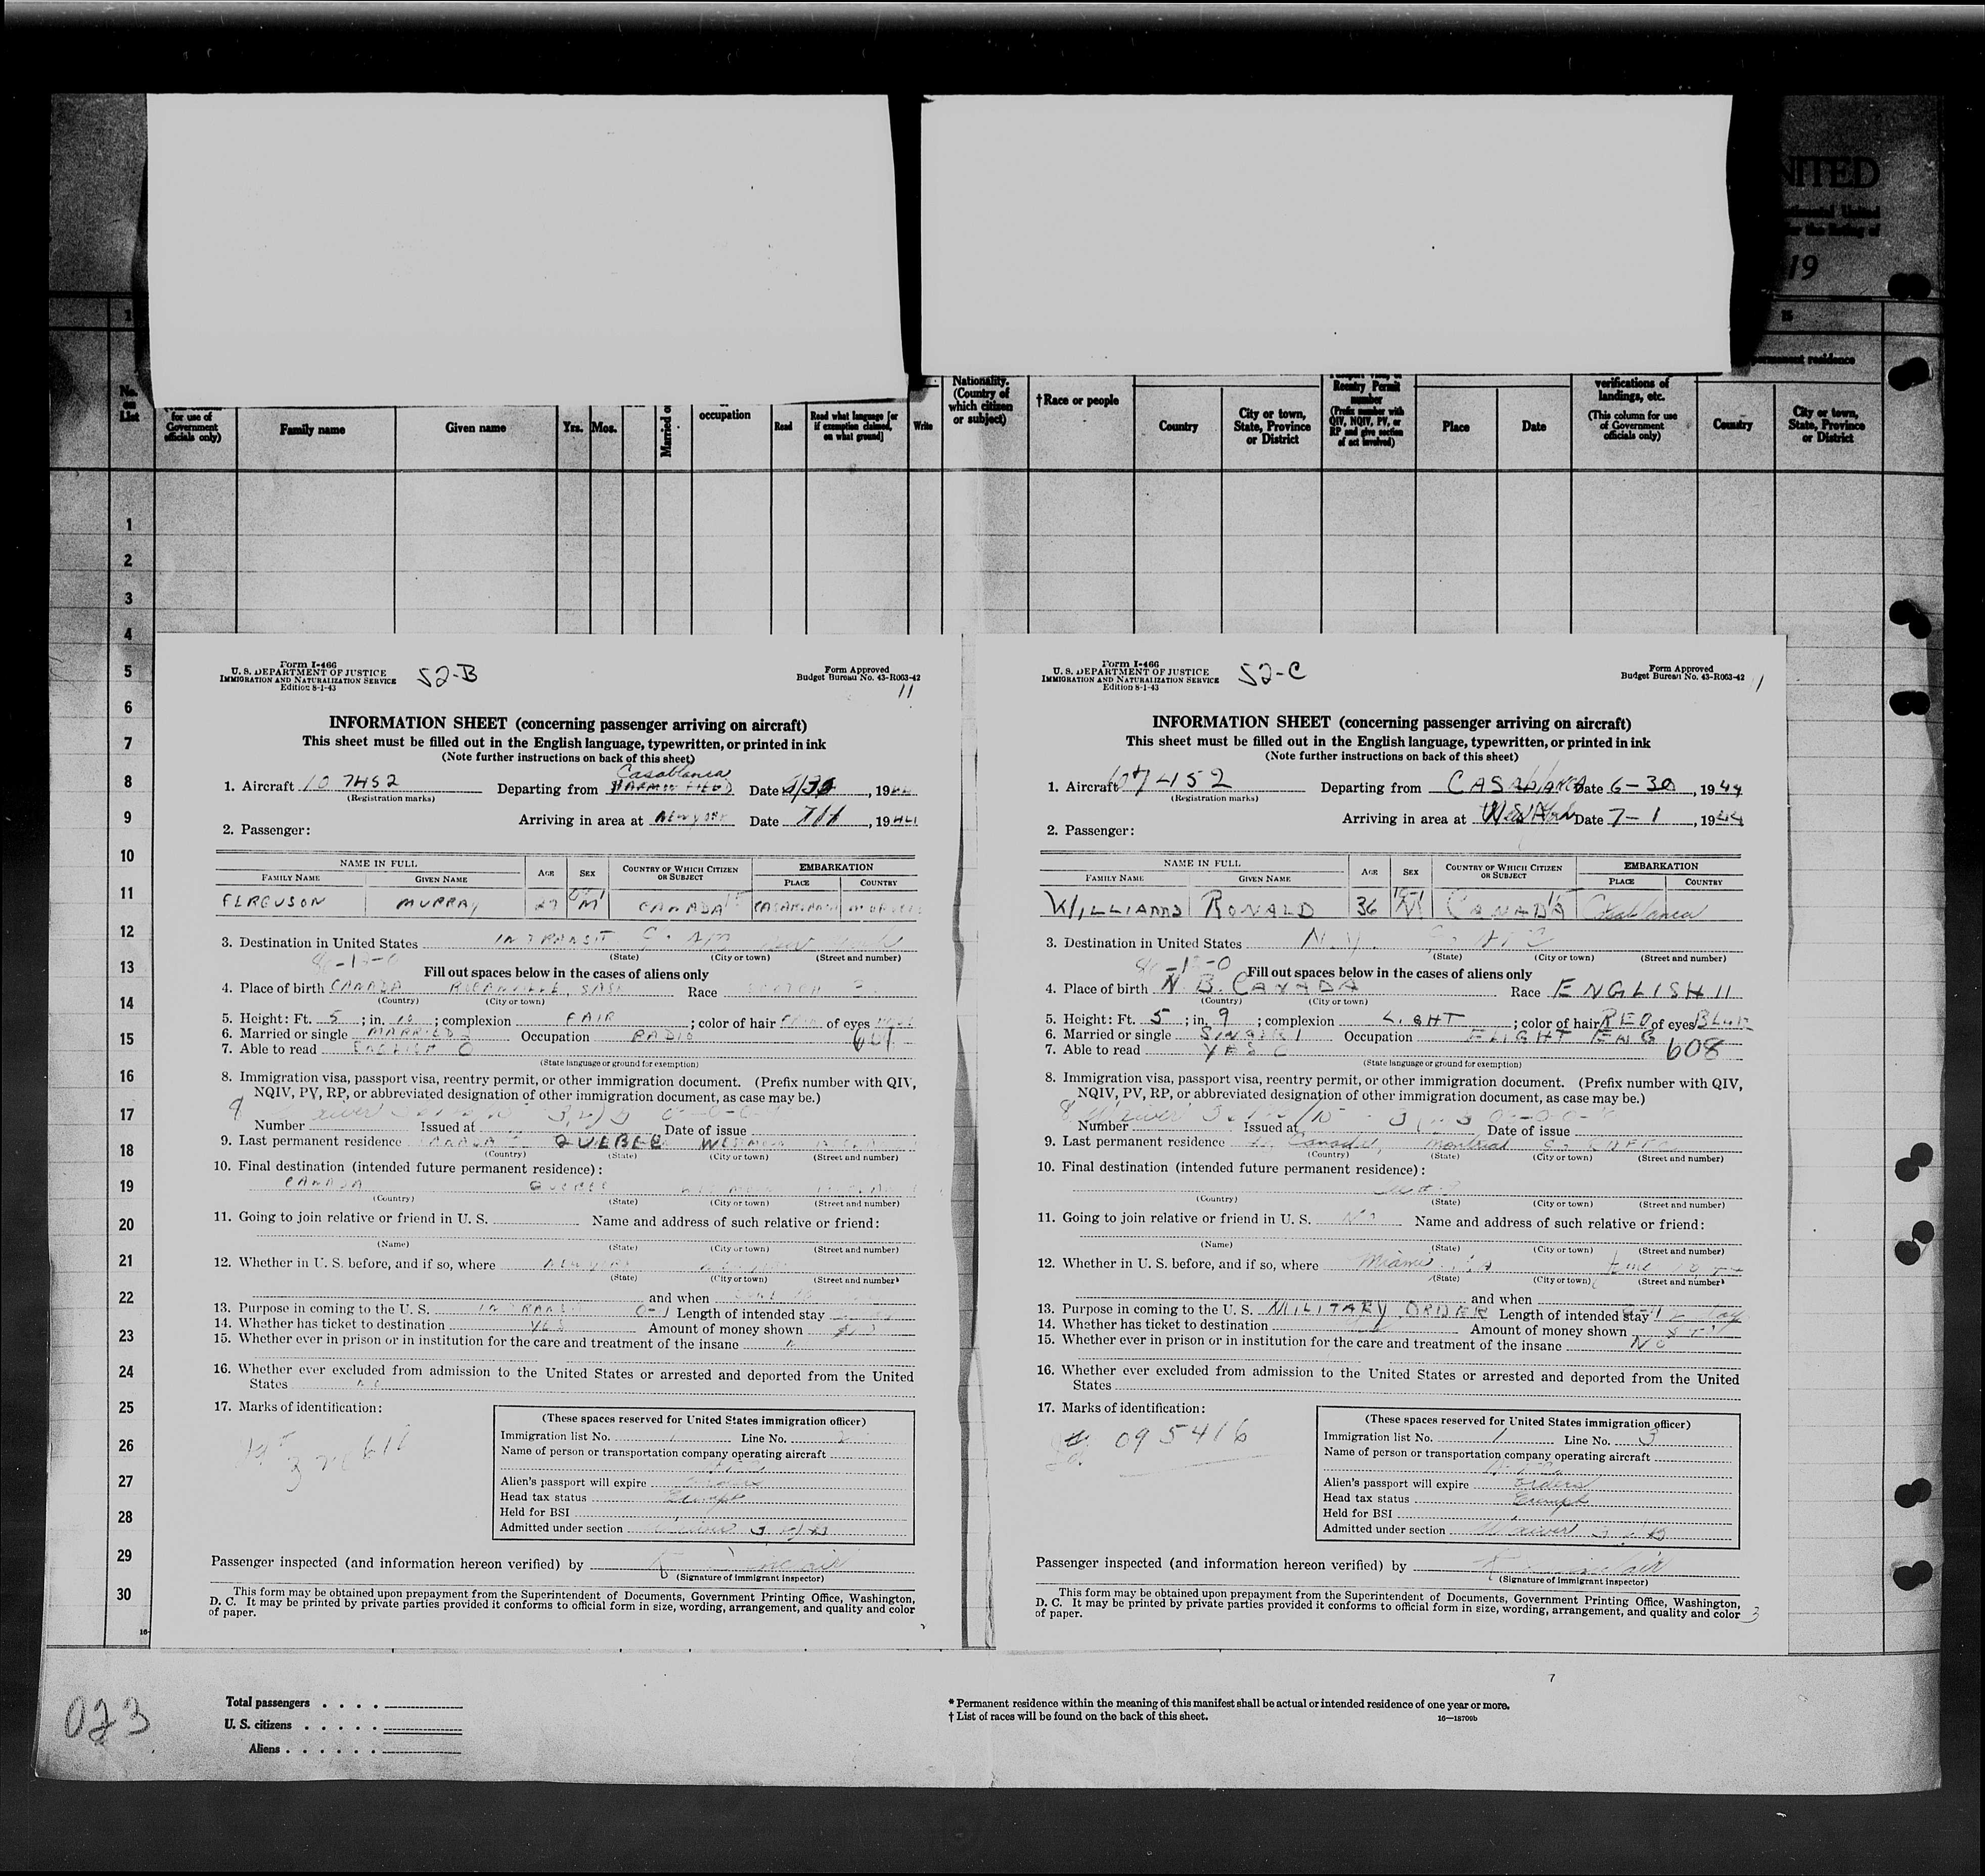 NITED
19
No. on List
for use of Government officials only)
Family name
Given name
Yrs.
Mos.
occupation
Read
Read what language [or if exemption claimed, on what ground]
Write
Nationality. (Country of which citizen or subject)
† Race or people
Country
City or town, State, Province or District
Reentry Permit number (Prefix number with QIV, NQIV, PV, or RP and give section of act involved)
Place
Date
verifications of landings, etc.
(This column for use of Government officials only)
permanent residence
Country
City or town, State, Province or District
1
2
3
4
5
6
7
8
9
10
11
12
13
14
15
16
17
18
19
20
21
22
23
24
25
26
27
28
29
30
Form I-466
U. S. DEPARTMENT OF JUSTICE
IMMIGRATION AND NATURALIZATION SERVICE
Edition 8-1-43
52-B
Form Approved
Budget Bureau No. 43-R063-42
11
INFORMATION SHEET (concerning passenger arriving on aircraft)
This sheet must be filled out in the English language, typewritten, or printed in ink
(Note further instructions on back of this sheet)
Casablanca
1. Aircraft 107452 Departing from HARMON FIELD Date 6/30, 1944
(Registration marks)
Arriving in area at New York Date 7/1, 1944
2. Passenger:
NAME IN FULL
FAMILY NAME GIVEN NAME AGE SEX COUNTRY OF WHICH CITIZEN OR SUBJECT EMBARKATION
PLACE COUNTRY
FERGUSON MURRAY 27 M CANADA CASABLANCA
3. Destination in United States IN TRANSIT
(State) (City or town) (Street and number)
Fill out spaces below in the cases of aliens only
4. Place of birth CANADA ROCANVILLE, SASK Race SCOTCH
(Country) (City or town)
5. Height: Ft. 5; in. 10; complexion FAIR; color of hair FAIR of eyes
6. Married or single MARRIED Occupation RADIO
7. Able to read ENGLISH
601
(State language or ground for exemption)
8. Immigration visa, passport visa, reentry permit, or other immigration document. (Prefix number with QIV, NQIV, PV, RP, or abbreviated designation of other immigration document, as case may be.)
Number Issued at Date of issue
9. Last permanent residence CANADA QUEBEC
(Country) (State) (City or town) (Street and number)
10. Final destination (intended future permanent residence):
CANADA QUEBEC
(Country) (State) (City or town) (Street and number)
11. Going to join relative or friend in U. S. Name and address of such relative or friend:
(Name) (State) (City or town) (Street and number)
12. Whether in U. S. before, and if so, where NEW YORK
(State) (City or town) (Street and number)
and when
13. Purpose in coming to the U. S. IN TRANSIT 0-1 Length of intended stay
14. Whether has ticket to destination YES Amount of money shown
15. Whether ever in prison or in institution for the care and treatment of the insane
16. Whether ever excluded from admission to the United States or arrested and deported from the United
States NO
17. Marks of identification:
(These spaces reserved for United States immigration officer)
Immigration list No. 1 Line No. 2
Name of person or transportation company operating aircraft
Alien's passport will expire
Head tax status Exempt
Held for BSI
Admitted under section Waiver
Passenger inspected (and information hereon verified) by
(Signature of immigrant inspector)
This form may be obtained upon prepayment from the Superintendent of Documents, Government Printing Office, Washington,
D. C. It may be printed by private parties provided it conforms to official form in size, wording, arrangement, and quality and color
of paper.
Form I-466
U. S. DEPARTMENT OF JUSTICE
IMMIGRATION AND NATURALIZATION SERVICE
Edition 8-1-43
52-C
Form Approved
Budget Bureau No. 43-R063-42
INFORMATION SHEET (concerning passenger arriving on aircraft)
This sheet must be filled out in the English language, typewritten, or printed in ink
(Note further instructions on back of this sheet)
1. Aircraft 107452 Departing from CASABLANCA Date 6-30, 1944
(Registration marks)
Arriving in area at Date 7-1, 1944
2. Passenger:
NAME IN FULL
FAMILY NAME GIVEN NAME AGE SEX COUNTRY OF WHICH CITIZEN OR SUBJECT EMBARKATION
PLACE COUNTRY
WILLIAMS RONALD 36 M CANADA Casablanca
3. Destination in United States N.Y.
(State) (City or town) (Street and number)
Fill out spaces below in the cases of aliens only
4. Place of birth N. B. CANADA Race ENGLISH 11
(Country) (City or town)
5. Height: Ft. 5; in. 9; complexion LIGHT; color of hair RED of eyes BLUE
6. Married or single SINGLE Occupation FLIGHT ENG
7. Able to read YES
608
(State language or ground for exemption)
8. Immigration visa, passport visa, reentry permit, or other immigration document. (Prefix number with QIV, NQIV, PV, RP, or abbreviated designation of other immigration document, as case may be.)
Number Issued at Date of issue
9. Last permanent residence Canada, Montreal
(Country) (State) (City or town) (Street and number)
10. Final destination (intended future permanent residence):
(Country) (State) (City or town) (Street and number)
11. Going to join relative or friend in U. S. NO Name and address of such relative or friend:
(Name) (State) (City or town) (Street and number)
12. Whether in U. S. before, and if so, where Miami
(State) (City or town) (Street and number)
and when
13. Purpose in coming to the U. S. MILITARY ORDER Length of intended stay
14. Whether has ticket to destination Amount of money shown
15. Whether ever in prison or in institution for the care and treatment of the insane NO
16. Whether ever excluded from admission to the United States or arrested and deported from the United
States
17. Marks of identification:
095416
(These spaces reserved for United States immigration officer)
Immigration list No. 1 Line No. 3
Name of person or transportation company operating aircraft
Alien's passport will expire Orders
Head tax status Exempt
Held for BSI
Admitted under section Waiver
Passenger inspected (and information hereon verified) by
(Signature of immigrant inspector)
This form may be obtained upon prepayment from the Superintendent of Documents, Government Printing Office, Washington,
D. C. It may be printed by private parties provided it conforms to official form in size, wording, arrangement, and quality and color
of paper.
3
073
Total passengers . . . .
U. S. citizens . . . . .
Aliens . . . . . .
* Permanent residence within the meaning of this manifest shall be actual or intended residence of one year or more.
† List of races will be found on the back of this sheet.
16—18709b
7